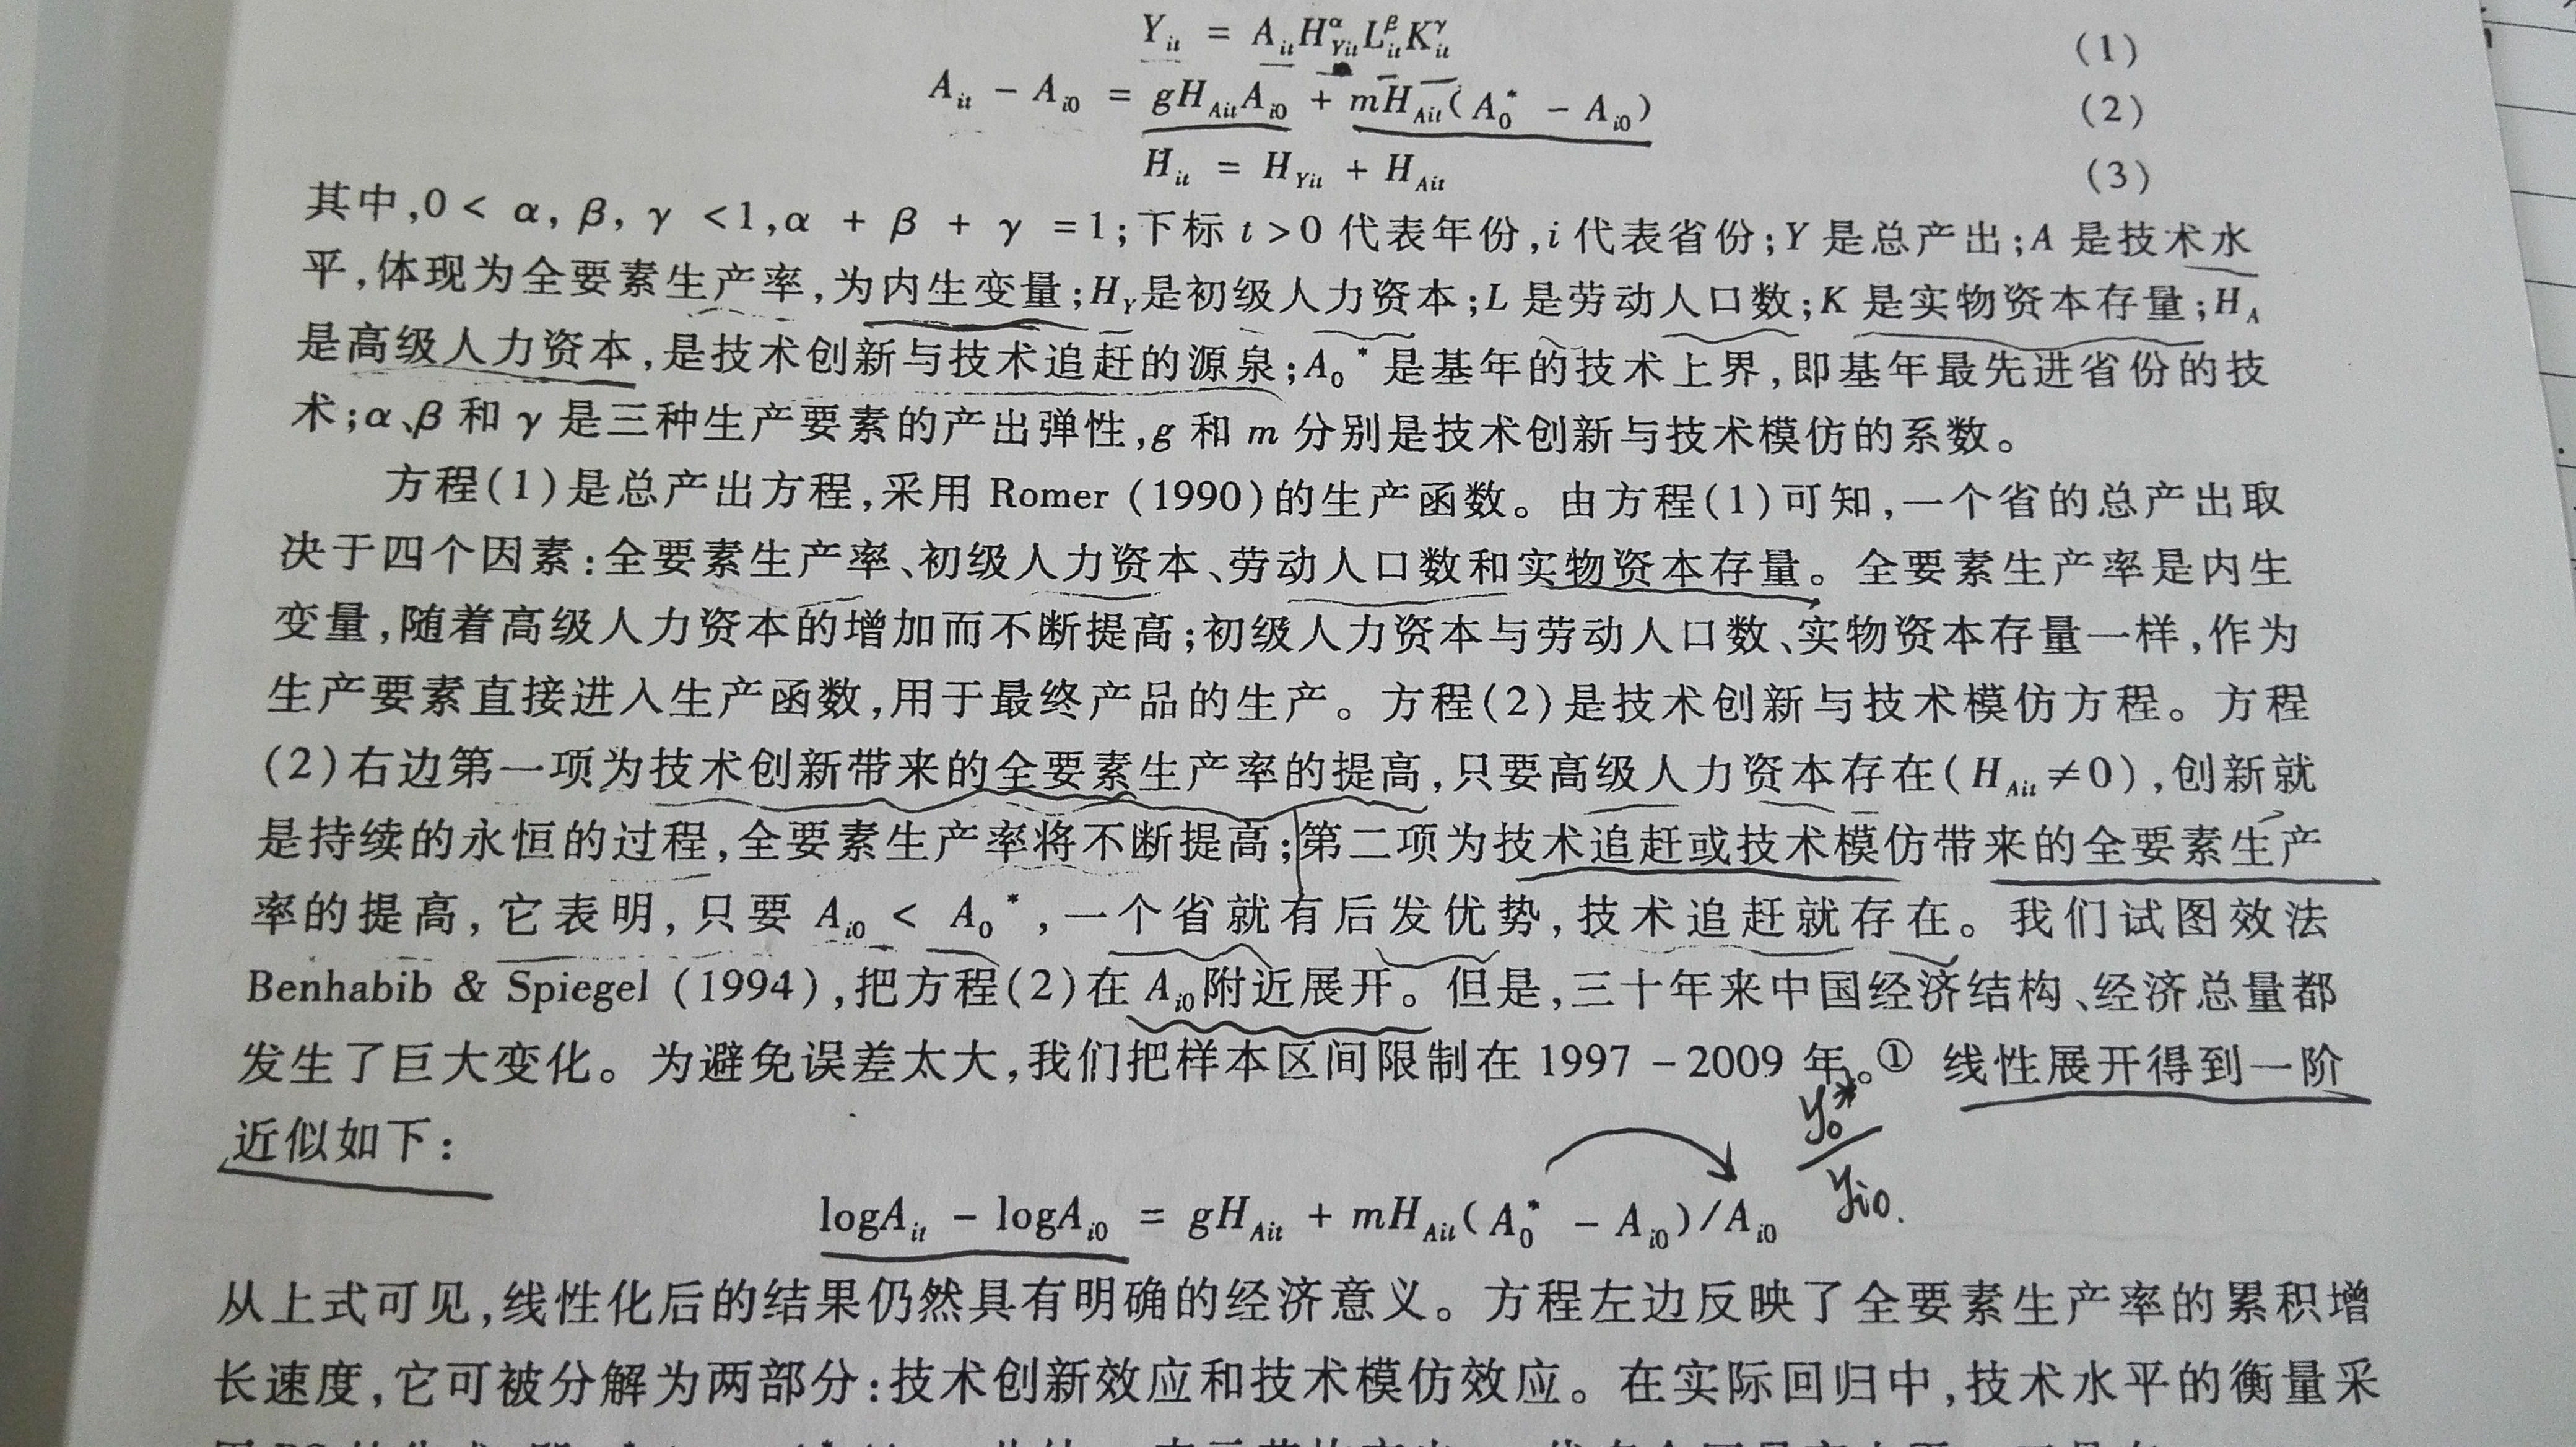 Y_it = A_it H_Yit^α L_it^β K_it^γ (1)
A_it - A_i0 = gH_Ait A_i0 + mH_Ait(A_0^* - A_i0) (2)
H_it = H_Yit + H_Ait (3)
其中,0 < α, β, γ <1,α + β + γ =1;下标 t >0 代表年份,i 代表省份;Y 是总产出;A 是技术水
平,体现为全要素生产率,为内生变量;H_Y是初级人力资本;L 是劳动人口数;K 是实物资本存量;H_A
是高级人力资本,是技术创新与技术追赶的源泉;A_0^* 是基年的技术上界,即基年最先进省份的技
术;α、β 和 γ 是三种生产要素的产出弹性,g 和 m 分别是技术创新与技术模仿的系数。
方程(1)是总产出方程,采用 Romer (1990)的生产函数。由方程(1)可知,一个省的总产出取
决于四个因素:全要素生产率、初级人力资本、劳动人口数和实物资本存量。全要素生产率是内生
变量,随着高级人力资本的增加而不断提高;初级人力资本与劳动人口数、实物资本存量一样,作为
生产要素直接进入生产函数,用于最终产品的生产。方程(2)是技术创新与技术模仿方程。方程
(2)右边第一项为技术创新带来的全要素生产率的提高,只要高级人力资本存在(H_Ait≠0),创新就
是持续的永恒的过程,全要素生产率将不断提高;第二项为技术追赶或技术模仿带来的全要素生产
率的提高,它表明,只要 A_i0 < A_0^*,一个省就有后发优势,技术追赶就存在。我们试图效法
Benhabib & Spiegel (1994),把方程(2)在 A_i0附近展开。但是,三十年来中国经济结构、经济总量都
发生了巨大变化。为避免误差太大,我们把样本区间限制在 1997 - 2009 年。① 线性展开得到一阶
近似如下:
y_0^*
y_i0.
logA_it - logA_i0 = gH_Ait + mH_Ait(A_0^* - A_i0)/A_i0
从上式可见,线性化后的结果仍然具有明确的经济意义。方程左边反映了全要素生产率的累积增
长速度,它可被分解为两部分:技术创新效应和技术模仿效应。在实际回归中,技术水平的衡量采